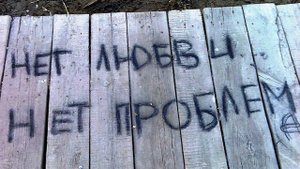 НЕТ ЛЮБВИ..
НЕТ ПРОБЛЕМ